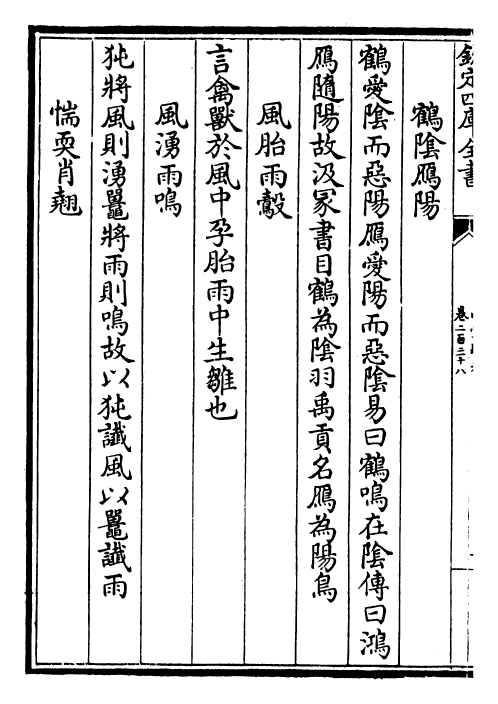 欽定四庫全書
卷二百三十八
鶴陰鴈陽
鶴愛陰而惡陽鴈愛陽而惡陰易曰鶴鳴在陰傳曰鴻
鴈隨陽故汲冢書目鶴為陰羽禹貢名鴈為陽鳥
風胎雨鷇
言禽獸於風中孕胎雨中生雛也
風湧雨鳴
㹠將風則湧鼉將雨則鳴故以㹠讖風以鼉讖雨
惴耎肖翹